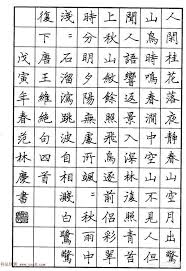 人閒桂花落夜靜春山空月出驚
山鳥時鳴春澗中空山不見人但
聞人語響返景入深林復照青苔
上秋山斂餘照飛鳥逐前侶彩翠
時分明夕嵐無處所颯颯秋雨中
淺淺石溜瀉跳波自相濺白鷺驚
復下唐王維絕句首
戊寅年春范林慶書